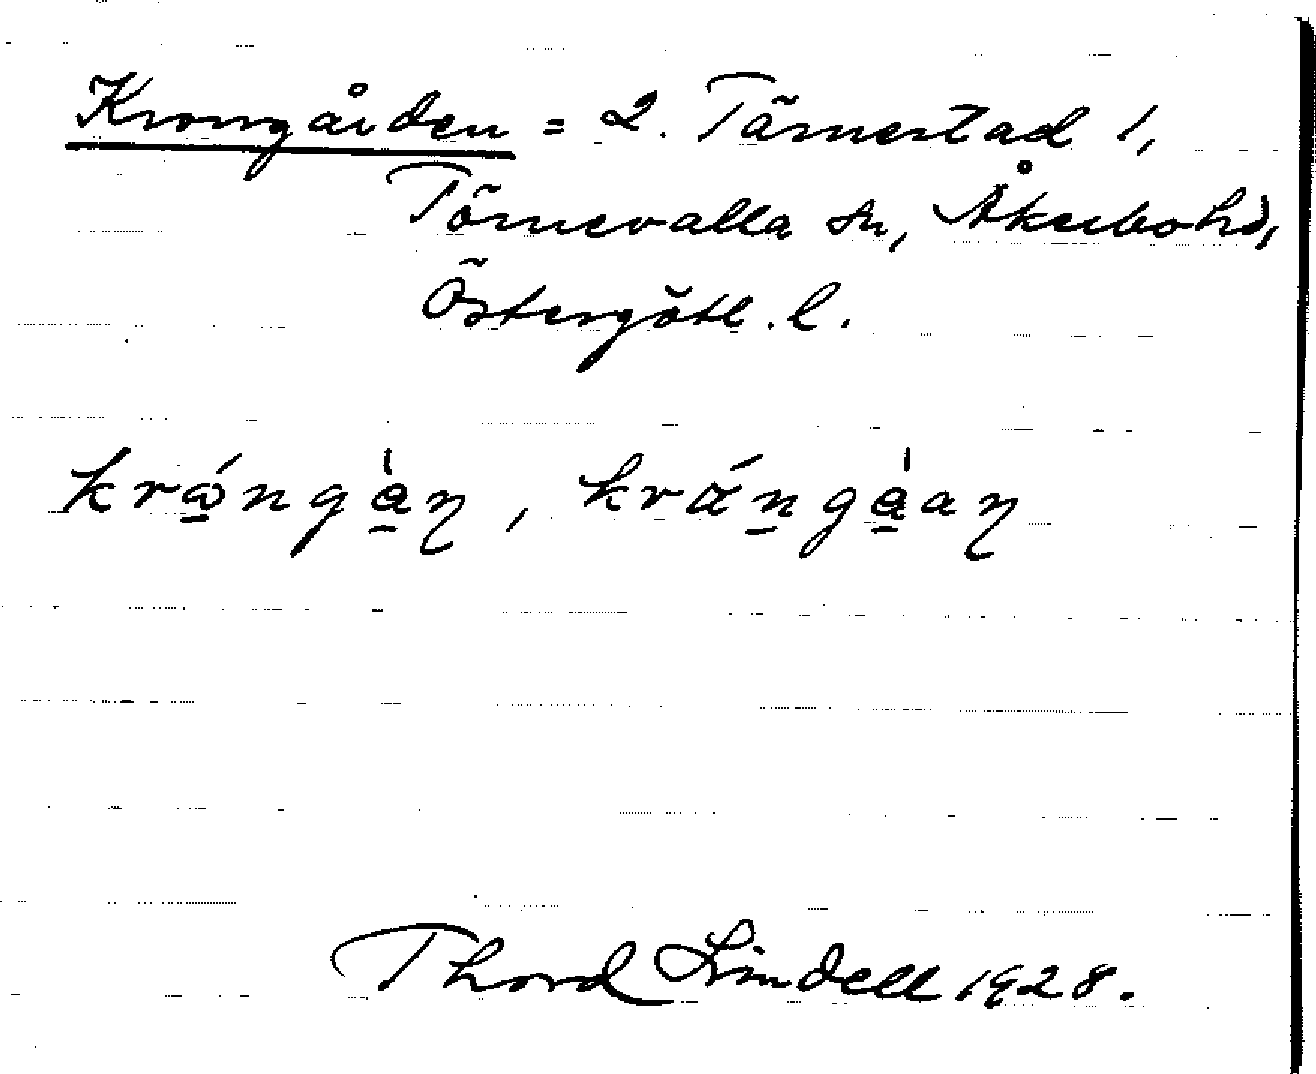 Krongården = 2. Tärnestad 1,
Törnevalla sn, Åkerbo hd,
Östergötl. l.
krǫ́ngą̀ṇ, krán̠gą̀aṇ
Thord Lindell 1928.